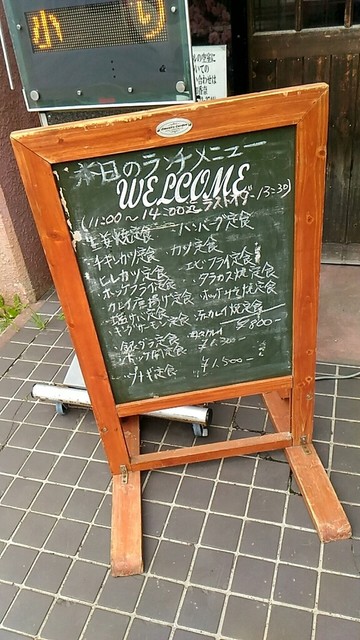 小 り
本日のランチメニュー
WELCOME
(11:00〜14:00迄 ラストオーダー13:30)
生姜焼定食 ハンバーグ定食
チキンカツ定食 カツ定食
ヒレカツ定食 エビフライ定食
ホッケフライ定食 タラカス焼定食
カレイ唐揚げ定食 ホッケ
塩サバ定食 赤カレイ焼定食
キングサーモン定食 ¥800-
銀ダラ定食
ホッケ定食 ¥1.300-
ウナギ定食 ¥1.500-